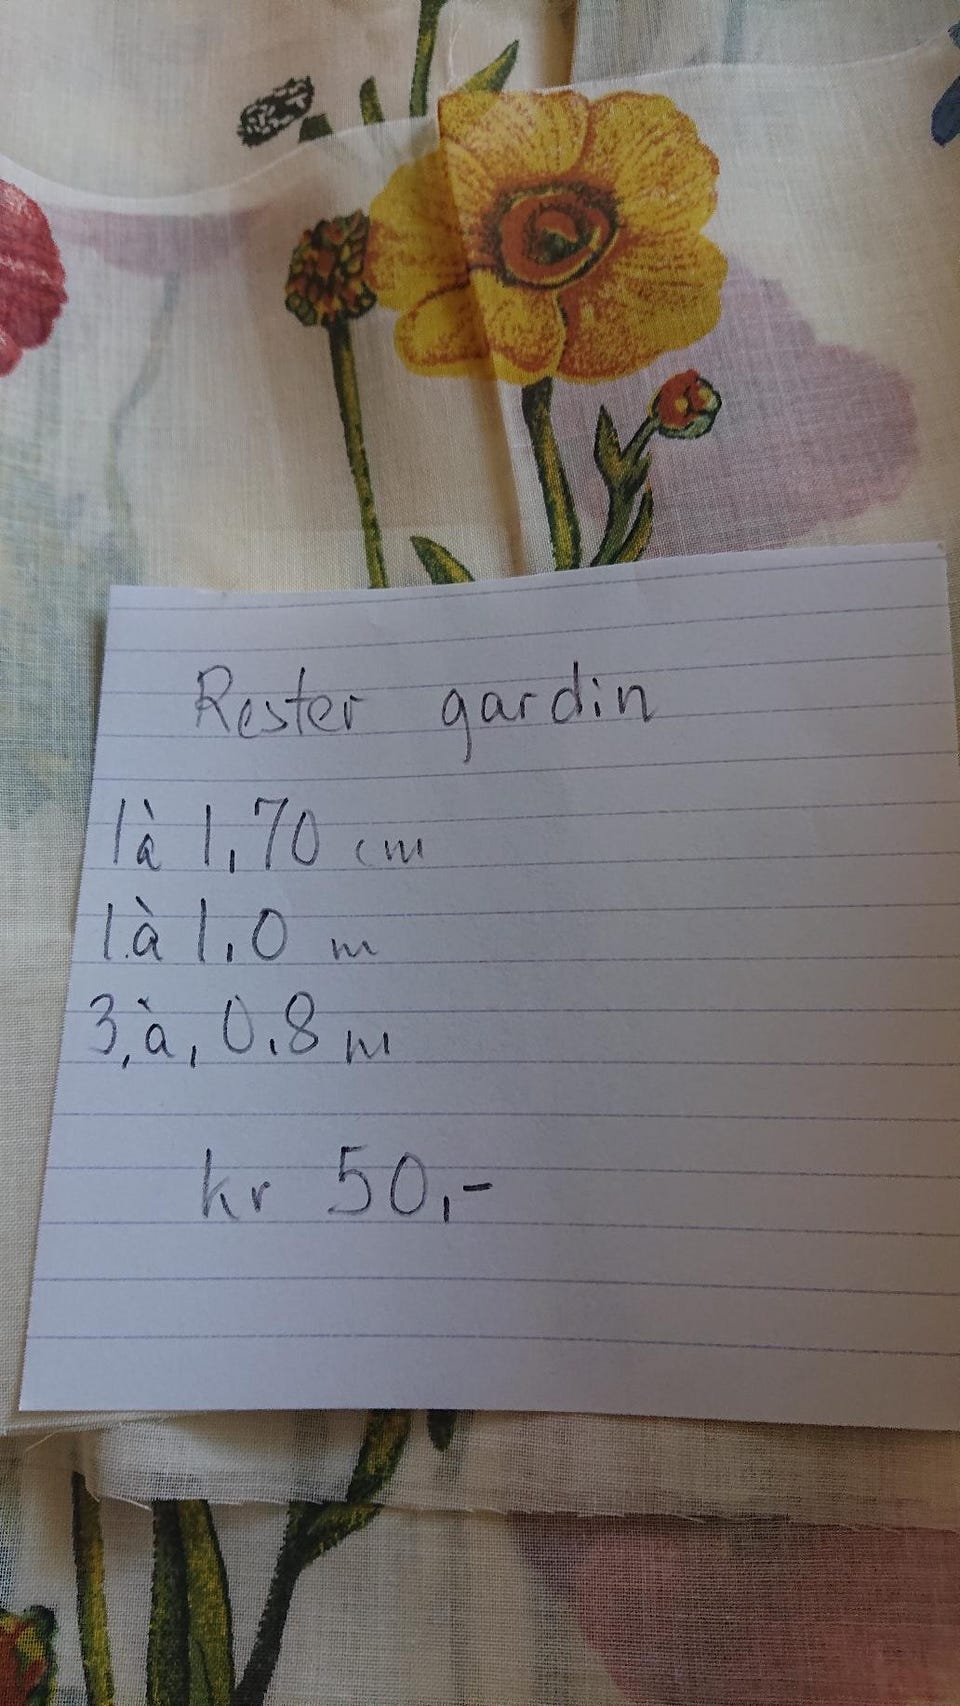 Rester gardin
1à 1,70 cm
1.à 1,0 m
3,à, 0,8 m
kr 50,-